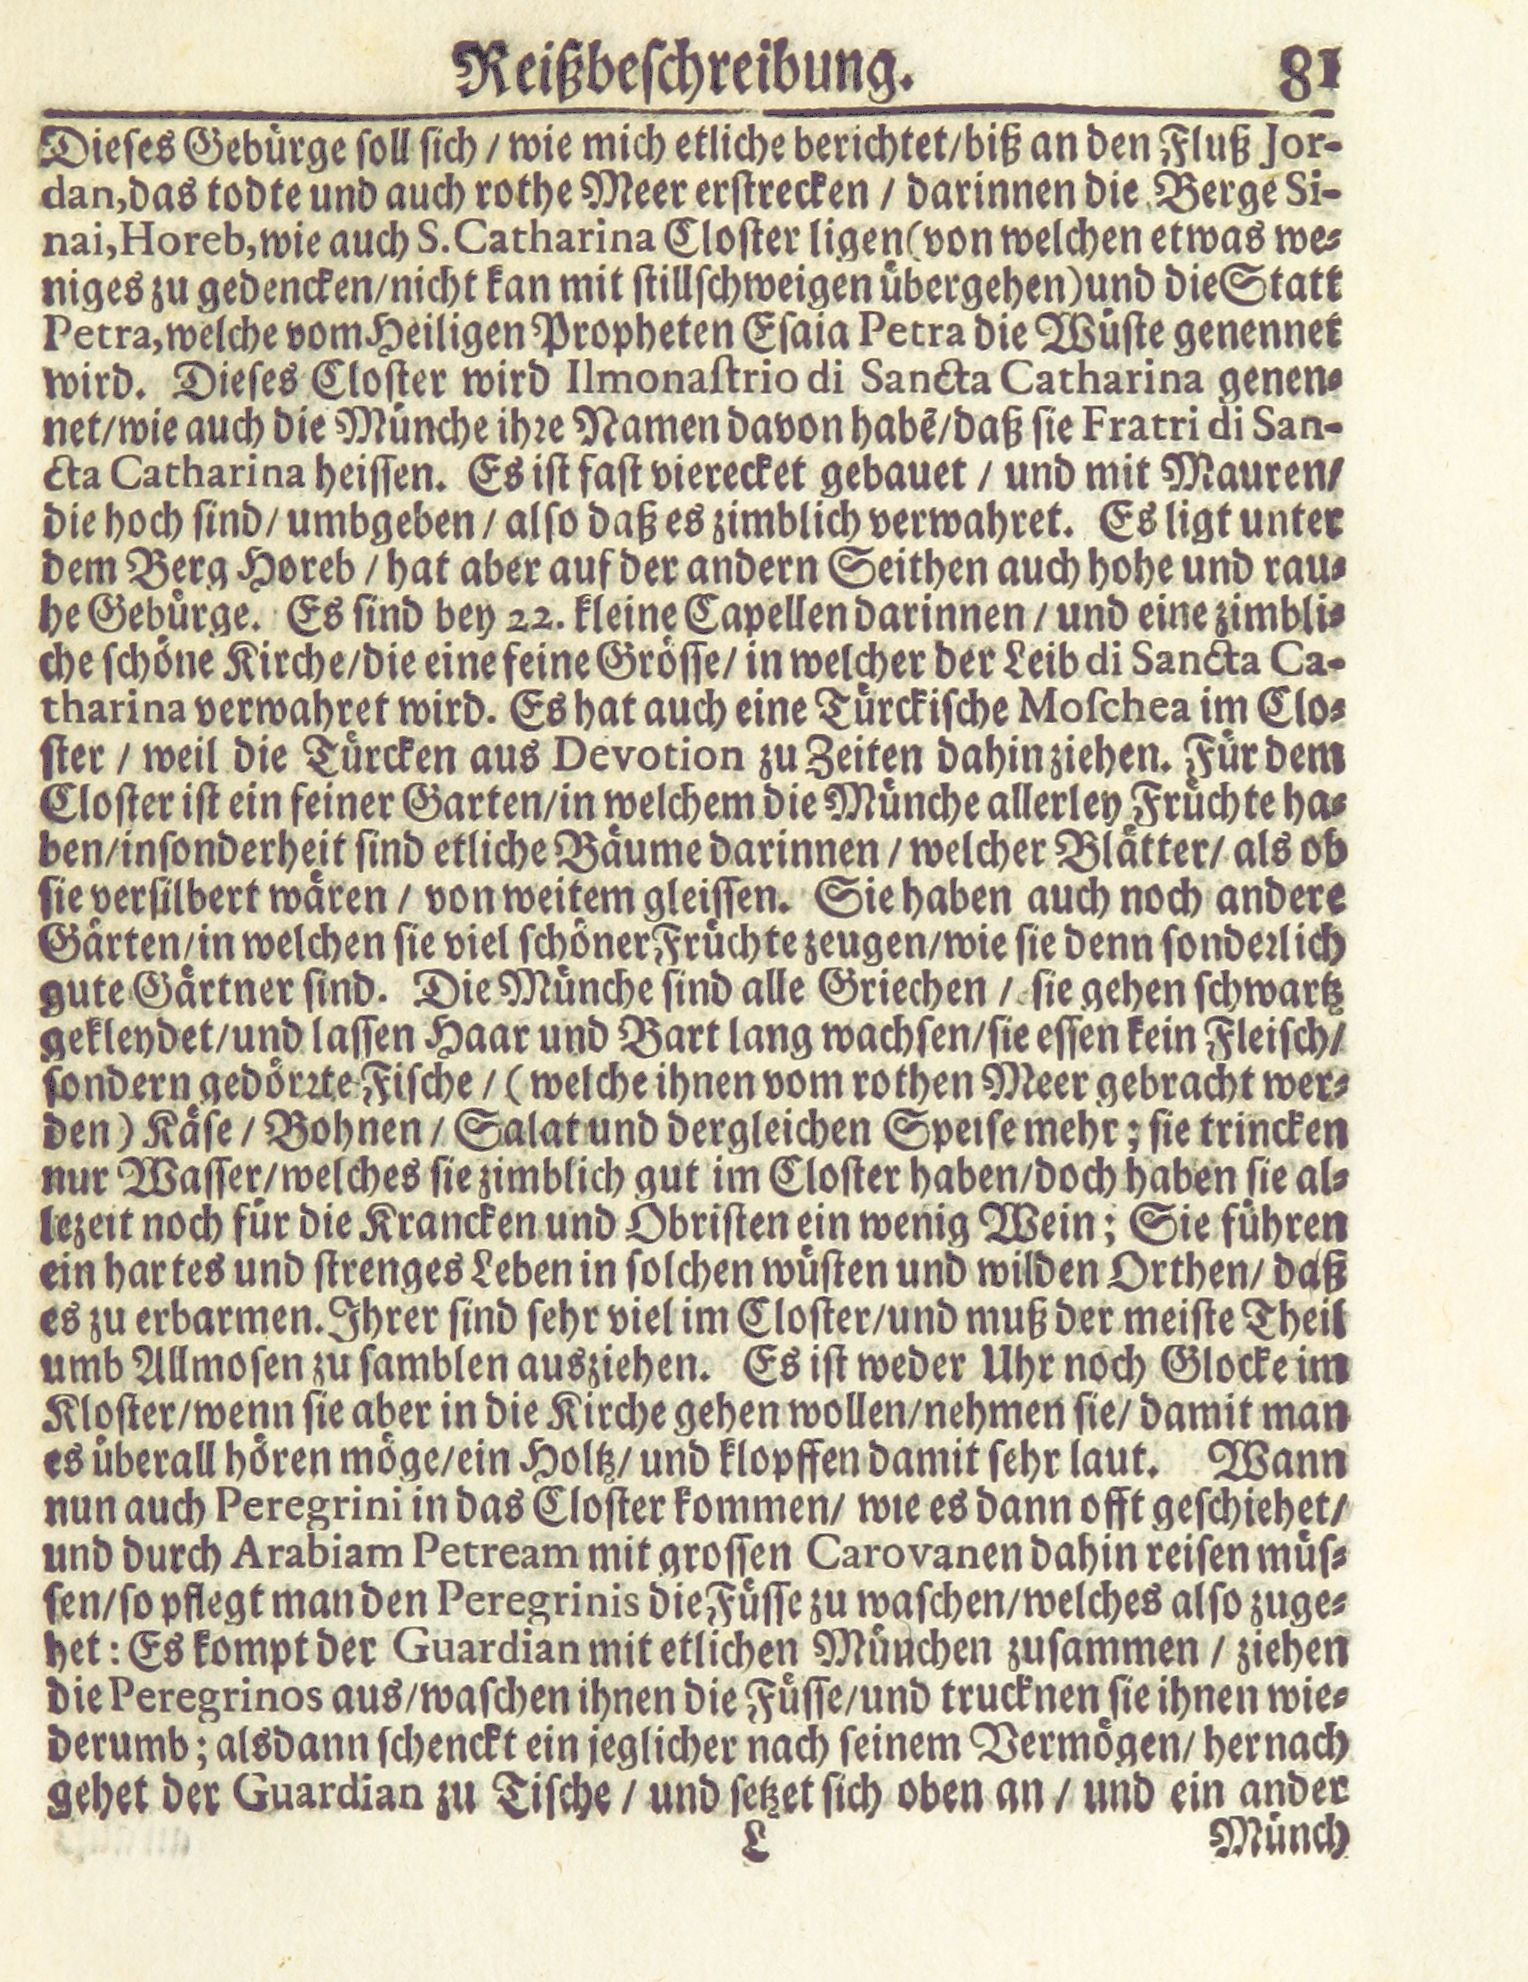 Reißbeschreibung. 81
Dieses Gebürge soll sich / wie mich etliche berichtet/biß an den Fluß Jor-
dan,das todte und auch rothe Meer erstrecken / darinnen die Berge Si-
nai,Horeb,wie auch S. Catharina Closter ligen(von welchen etwas we-
niges zu gedencken/nicht kan mit stillschweigen übergehen)und die Statt
Petra,welche vom Heiligen Propheten Esaia Petra die Wüste genennet
wird. Dieses Closter wird Ilmonastrio di Sancta Catharina genen-
net/wie auch die Münche ihre Namen davon habẽ/daß sie Fratri di San-
cta Catharina heissen. Es ist fast vierecket gebauet / und mit Mauren/
die hoch sind/ umbgeben / also daß es zimblich verwahret. Es ligt unter
dem Berg Horeb / hat aber auf der andern Seithen auch hohe und rau-
he Gebürge. Es sind bey 22. kleine Capellen darinnen / und eine zimbli-
che schöne Kirche/die eine feine Grösse/ in welcher der Leib di Sancta Ca-
tharina verwahret wird. Es hat auch eine Türckische Moschea im Clo-
ster / weil die Türcken aus Devotion zu Zeiten dahin ziehen. Für dem
Closter ist ein feiner Garten/in welchem die Münche allerley Früchte ha-
ben/insonderheit sind etliche Bäume darinnen / welcher Blätter/ als ob
sie versilbert wären / von weitem gleissen. Sie haben auch noch andere
Gärten/in welchen sie viel schöner Früchte zeugen/wie sie denn sonderlich
gute Gärtner sind. Die Münche sind alle Griechen / sie gehen schwartz
gekleydet/und lassen Haar und Bart lang wachsen/sie essen kein Fleisch/
sondern gedörrte Fische / (welche ihnen vom rothen Meer gebracht wer-
den) Käse / Bohnen / Salat und dergleichen Speise mehr; sie trincken
nur Wasser/welches sie zimblich gut im Closter haben/doch haben sie al-
lezeit noch für die Krancken und Obristen ein wenig Wein; Sie führen
ein hartes und strenges Leben in solchen wüsten und wilden Orthen/ daß
es zu erbarmen. Ihrer sind sehr viel im Closter/und muß der meiste Theil
umb Allmosen zu samblen ausziehen. Es ist weder Uhr noch Glocke im
Kloster/wenn sie aber in die Kirche gehen wollen/nehmen sie/ damit man
es überall hören möge/ein Holtz/ und klopffen damit sehr laut. Wann
nun auch Peregrini in das Closter kommen/ wie es dann offt geschiehet/
und durch Arabiam Petream mit grossen Carovanen dahin reisen müs-
sen/so pflegt man den Peregrinis die Füsse zu waschen/welches also zuge-
het: Es kompt der Guardian mit etlichen München zusammen / ziehen
die Peregrinos aus/waschen ihnen die Füsse/und trucknen sie ihnen wie-
derumb; alsdann schenckt ein jeglicher nach seinem Vermögen/ hernach
gehet der Guardian zu Tische / und setzet sich oben an / und ein ander
L Münch